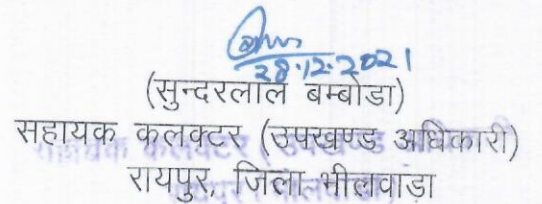 28.12.2021
(सुन्दरलाल बम्बोडा)
सहायक कलक्टर (उपखण्ड अधिकारी)
रायपुर, जिला भीलवाडा